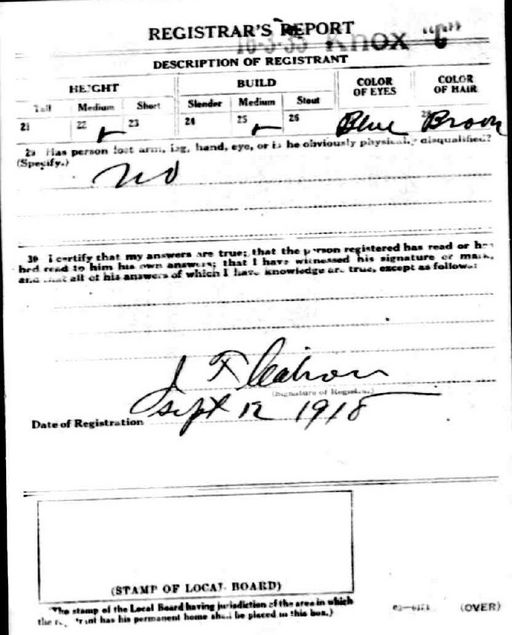 REGISTRAR'S REPORT
16-3-35 Knox "C"
DESCRIPTION OF REGISTRANT
HEIGHT BUILD COLOR OF EYES COLOR OF HAIR
Tall Medium Short Slender Medium Stout
21 22 23 24 25 26 Blue Brown
29 Has person lost arm, leg, hand, eye, or is he obviously physically disqualified?
(Specify.)
No
30 I certify that my answers are true; that the person registered has read or has
had read to him his own answers; that I have witnessed his signature or mark,
and that all of his answers of which I have knowledge are true, except as follows:
J
(Signature of Registrar)
Date of Registration Sept 12 1918
(STAMP OF LOCAL BOARD)
(The stamp of the Local Board having jurisdiction of the area in which
the registrant has his permanent home shall be placed in this box.)
(OVER)